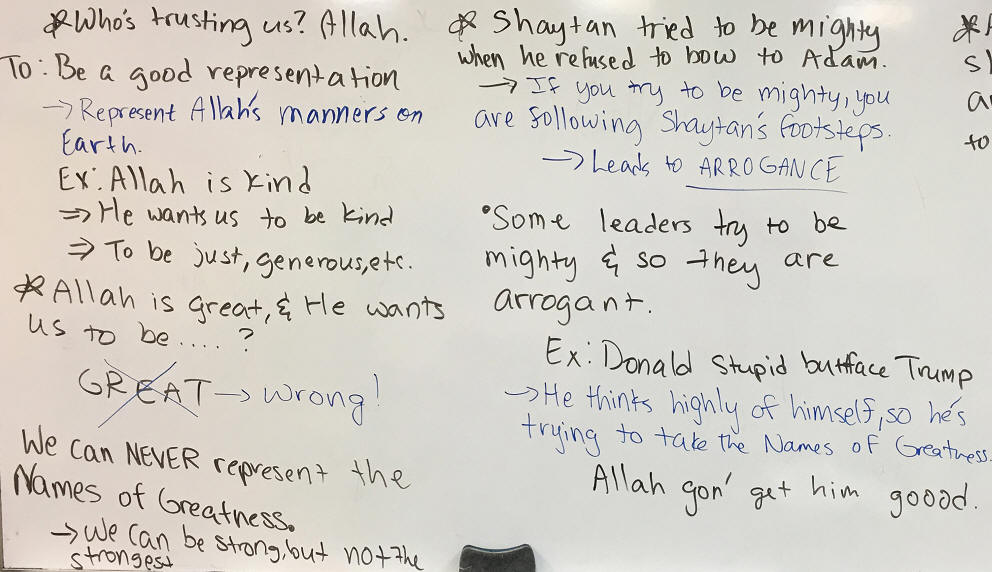 *Who's trusting us? Allah.
To: Be a good representation
→ Represent Allah's manners on
Earth.
Ex: Allah is kind
⇒ He wants us to be kind
⇒ To be just, generous, etc.
*Allah is great, & He wants
us to be .... ?
GREAT → wrong!
We can NEVER represent the
Names of Greatness.
→ we can be strong, but not the
strongest
* Shaytan tried to be mighty
when he refused to bow to Adam.
→ If you try to be mighty, you
are following Shaytan's footsteps.
→ Leads to ARROGANCE
•Some leaders try to be
mighty & so they are
arrogant.
Ex: Donald Stupid buttface Trump
→ He thinks highly of himself, so he's
trying to take the Names of Greatness.
Allah gon' get him goood.
*
to